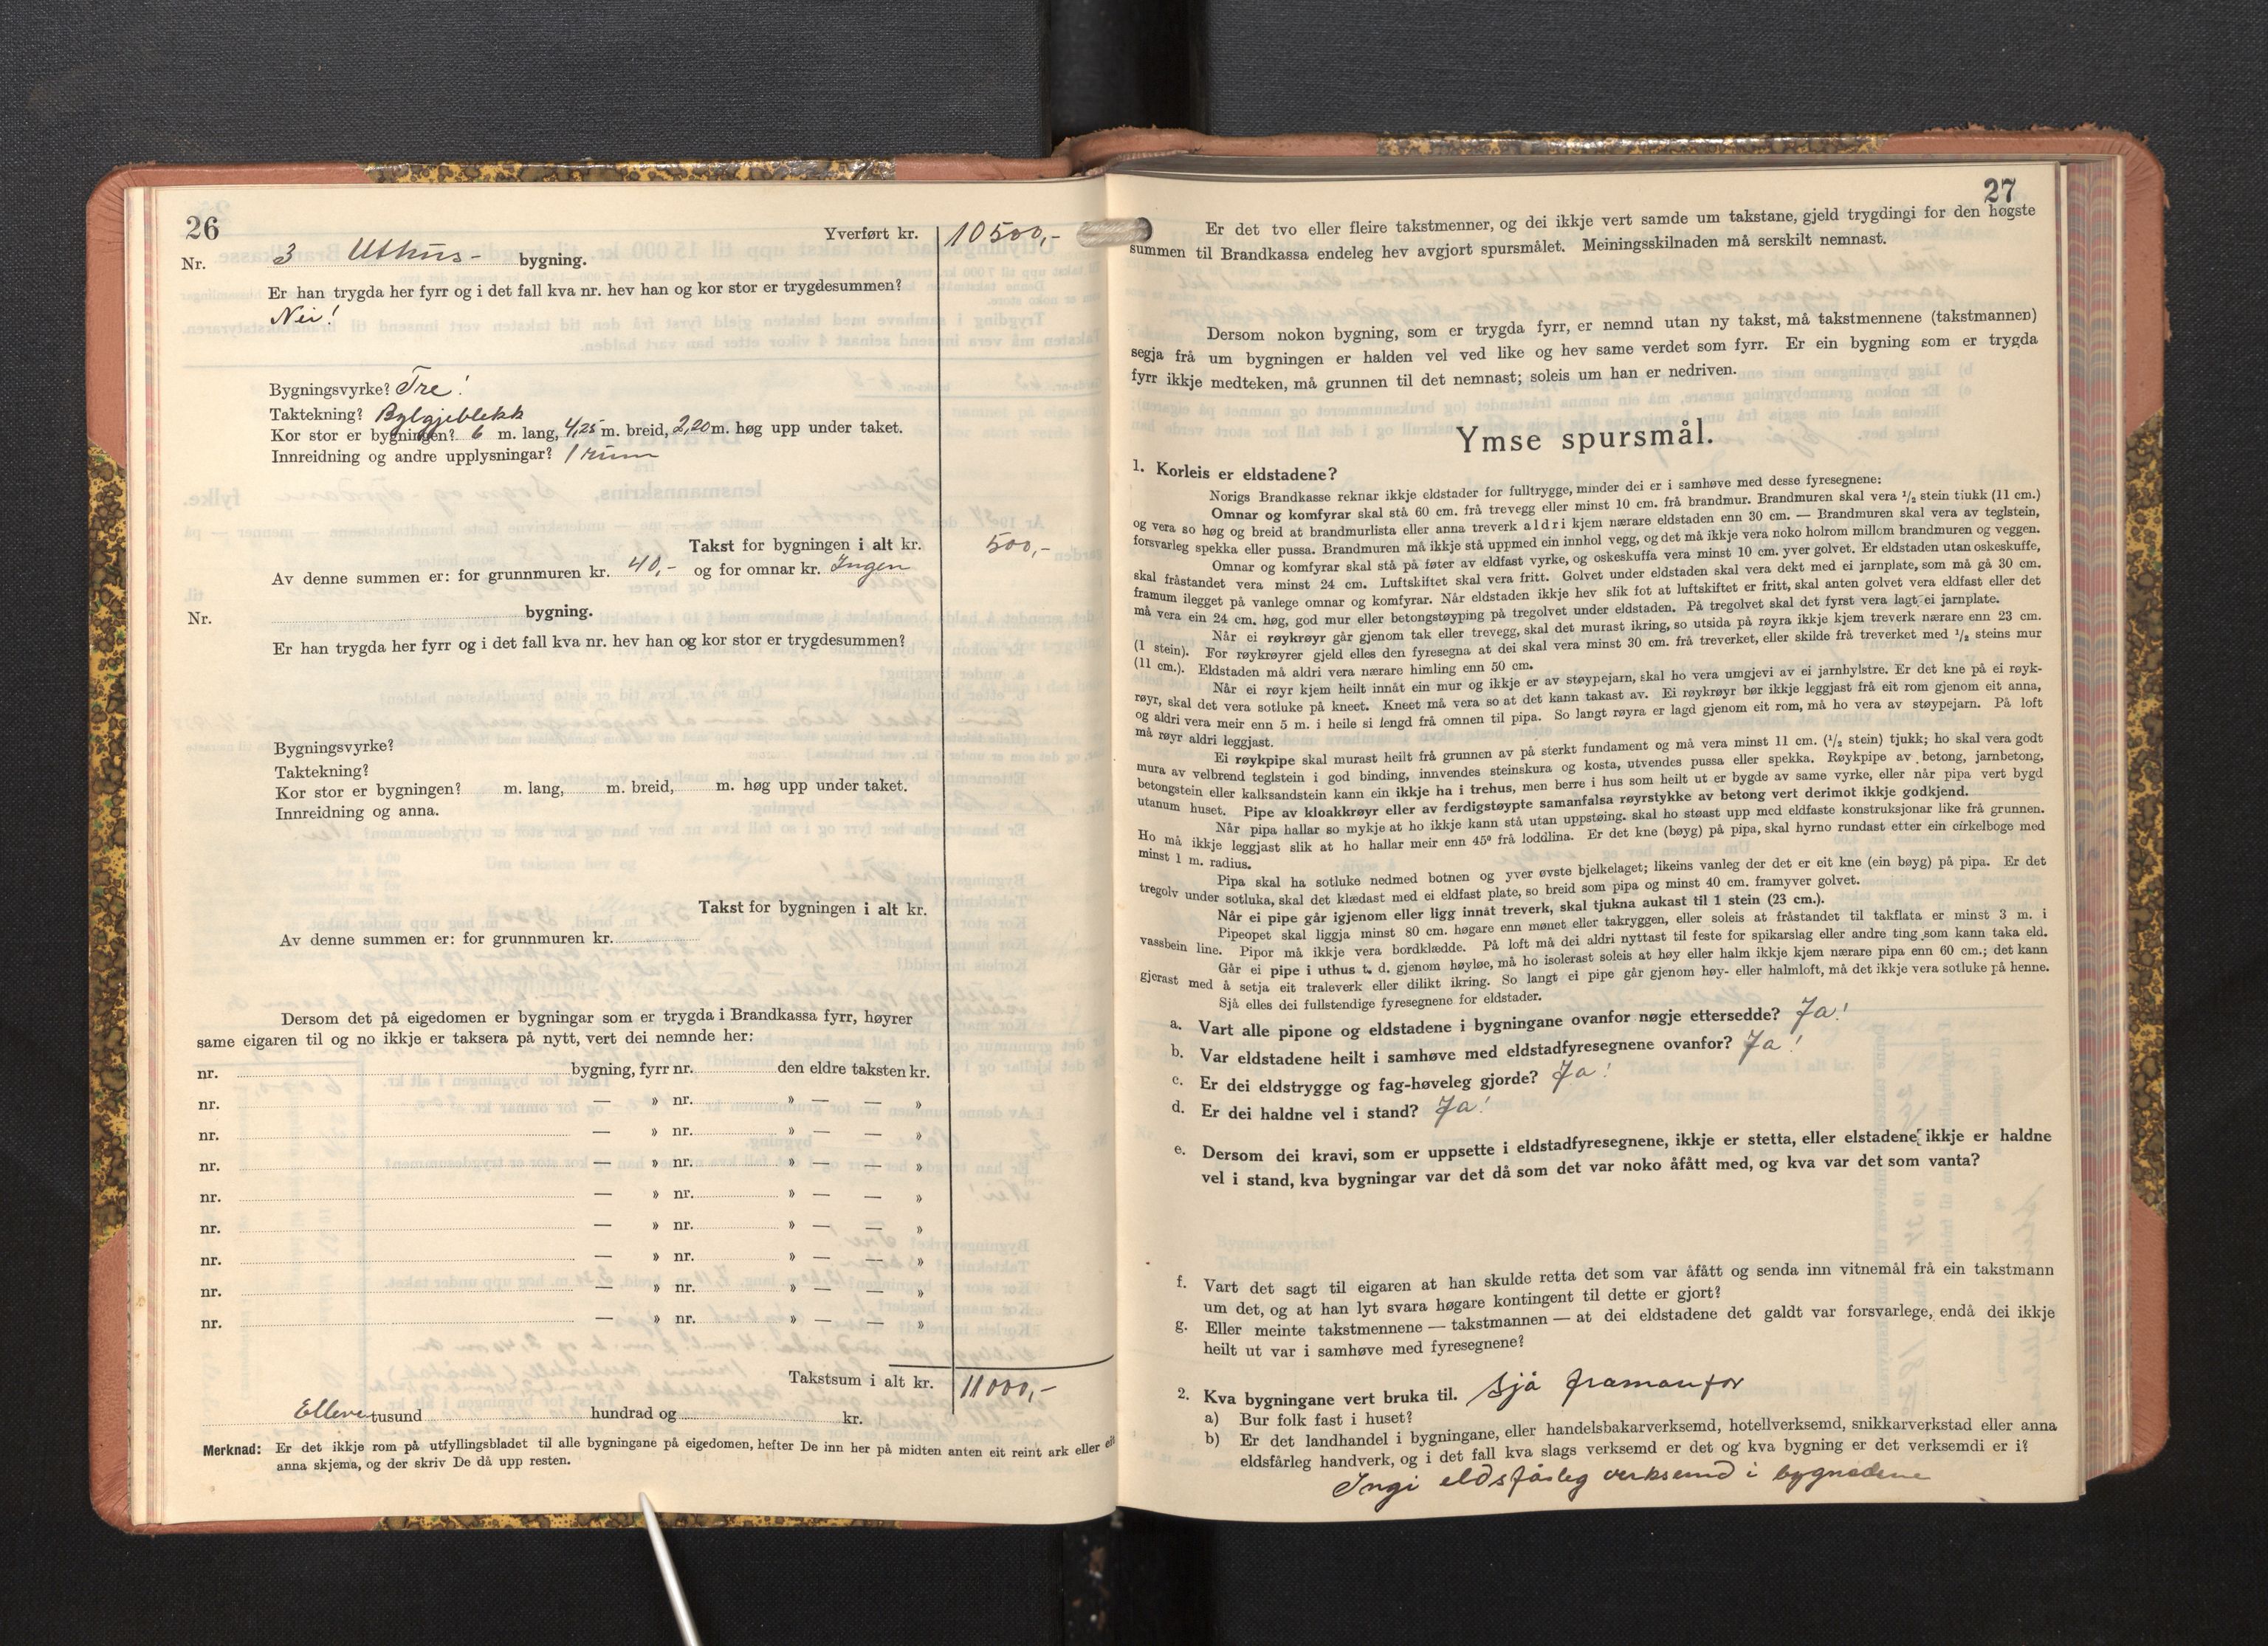 26
Yverført kr. 10500,-
Nr. 3 Uthus- bygning.
Er han trygda her fyrr og i det fall kva nr. hev han og kor stor er trygdesummen?
Nei!
Bygningsvyrke? Tre!
Taktekning? Bylgjeblekk
Kor stor er bygningen? 6 m. lang, 4,25 m. breid, 2,20 m. høg upp under taket.
Innreidning og andre upplysningar? 1 rum
Takst for bygningen i alt kr. 500,-
Av denne summen er: for grunnmuren kr. 40,- og for omnar kr. Ingen
Nr. bygning.
Er han trygda her fyrr og i det fall kva nr. hev han og kor stor er trygdesummen?
Bygningsvyrke?
Taktekning?
Kor stor er bygningen? m. lang, m. breid, m. høg upp under taket.
Innreidning og anna.
Takst for bygningen i alt kr.
Av denne summen er: for grunnmuren kr.
Dersom det på eigedomen er bygningar som er trygda i Brandkassa fyrr, høyrer
same eigaren til og no ikkje er taksera på nytt, vert dei nemnde her:
nr. bygning, fyrr nr. den eldre taksten kr.
nr. — » nr. » — — »
nr. — » nr. » — — »
nr. — » nr. » — — »
nr. — » nr. » — — »
nr. — » nr. » — — »
nr. — » nr. » — — »
nr. — » nr. » — — »
nr. — » nr. » — — »
Takstsum i alt kr. 11000,-
Elleve tusund hundrad og kr.
Merknad: Er det ikkje rom på utfyllingsbladet til alle bygningane på eigedomen, hefter De inn her på midten anten eit reint ark eller eit
anna skjema, og der skriv De då upp resten.
27
Er det tvo eller fleire takstmenner, og dei ikkje vert samde um takstane, gjeld trygdingi for den høgste
summen til Brandkassa endeleg hev avgjort spursmålet. Meiningsskilnaden må serskilt nemnast.
Dersom nokon bygning, som er trygda fyrr, er nemnd utan ny takst, må takstmennene (takstmannen)
segja frå um bygningen er halden vel ved like og hev same verdet som fyrr. Er ein bygning som er trygda
fyrr ikkje medteken, må grunnen til det nemnast; soleis um han er nedriven.
Ymse spursmål.
1. Korleis er eldstadene?
Norigs Brandkasse reknar ikkje eldstader for fulltrygge, minder dei er i samhøve med desse fyresegnene:
Omnar og komfyrar skal stå 60 cm. frå trevegg eller minst 10 cm. frå brandmur. Brandmuren skal vera 1/2 stein tiukk (11 cm.)
og vera so høg og breid at brandmurlista eller anna treverk aldri kjem nærare eldstaden enn 30 cm. — Brandmuren skal vera av teglstein,
forsvarleg spekka eller pussa. Brandmuren må ikkje stå uppmed ein innhol vegg, og det må ikkje vera noko holrom millom brandmuren og veggen.
Omnar og komfyrar skal stå på føter av eldfast vyrke, og oskeskuffa vera minst 10 cm. yver golvet. Er eldstaden utan oskeskuffe,
skal fråstandet vera minst 24 cm. Luftskiftet skal vera fritt. Golvet under eldstaden skal vera dekt med ei jarnplate, som må gå 30 cm.
framum ilegget på vanlege omnar og komfyrar. Når eldstaden ikkje hev slik fot at luftskiftet er fritt, skal anten golvet vera eldfast eller det
må vera ein 24 cm. høg, god mur eller betongstøyping på tregolvet under eldstaden. På tregolvet skal det fyrst vera lagt ei jarnplate.
Når ei røykrøyr går gjenom tak eller trevegg, skal det murast ikring, so utsida på røyra ikkje kjem treverk nærare enn 23 cm.
(1 stein). For røykrøyrer gjeld elles den fyresegna at dei skal vera minst 30 cm. frå treverket, eller skilde frå treverket med 1/2 steins mur
(11 cm.). Eldstaden må aldri vera nærare himling enn 50 cm.
Når ei røyr kjem heilt innåt ein mur og ikkje er av støypejarn, skal ho vera umgjevi av ei jarnhylstre. Er det kne på ei røyk-
røyr, skal det vera sotluke på kneet. Kneet må vera so at det kann takast av. Ei røykrøyr bør ikkje leggjast frå eit rom gjenom eit anna,
og aldri vera meir enn 5 m. i heile si lengd frå omnen til pipa. So langt røyra er lagd gjenom eit rom, må ho vera av støypejarn. På loft
må røyr aldri leggjast.
Ei røykpipe skal murast heilt frå grunnen av på sterkt fundament og må vera minst 11 cm. (1/2 stein) tjukk; ho skal vera godt
mura av velbrend teglstein i god binding, innvendes steinskura og kosta, utvendes pussa eller spekka. Røykpipe av betong, jarnbetong,
betongstein eller kalksandstein kann ein ikkje ha i trehus, men berre i hus som heilt ut er bygde av same vyrke, eller når pipa vert bygd
utanum huset. Pipe av kloakkrøyr eller av ferdigstøypte samanfalsa røyrstykke av betong vert derimot ikkje godkjend.
Når pipa hallar so mykje at ho ikkje kann stå utan uppstøing. skal ho støast upp med eldfaste konstruksjonar like frå grunnen.
Ho må ikkje leggjast slik at ho hallar meir enn 45° frå loddlina. Er det kne (bøyg) på pipa, skal hyrno rundast etter ein cirkelboge med
minst 1 m. radius.
Pipa skal ha sotluke nedmed botnen og yver øvste bjelkelaget; likeins vanleg der det er eit kne (ein bøyg) på pipa. Er det
tregolv under sotluka, skal det klædast med ei eldfast plate, so breid som pipa og minst 40 cm. framyver golvet.
Når ei pipe går igjenom eller ligg innåt treverk, skal tjukna aukast til 1 stein (23 cm.).
Pipeopet skal liggja minst 80 cm. høgare enn mønet eller takryggen, eller soleis at fråstandet til takflata er minst 3 m. i
vassbein line. Pipor må ikkje vera bordklædde. På loft må dei aldri nyttast til feste for spikarslag eller andre ting som kann taka eld.
Går ei pipe i uthus t. d. gjenom høyløe, må ho isolerast soleis at høy eller halm ikkje kjem nærare pipa enn 60 cm.; det kann
gjerast med å setja eit traleverk eller dilikt ikring. So langt ei pipe går gjenom høy- eller halmloft, må det ikkje vera sotluke på henne.
Sjå elles dei fullstendige fyresegnene for eldstader.
a. Vart alle pipone og eldstadene i bygningane ovanfor nøgje ettersedde? Ja!
b. Var eldstadene heilt i samhøve med eldstadfyresegnene ovanfor? Ja!
c. Er dei eldstrygge og fag-høveleg gjorde? Ja!
d. Er dei haldne vel i stand? Ja!
e. Dersom dei kravi, som er uppsette i eldstadfyresegnene, ikkje er stetta, eller elstadene ikkje er haldne
vel i stand, kva bygningar var det då som det var noko åfått med, og kva var det som vanta?
f. Vart det sagt til eigaren at han skulde retta det som var åfått og senda inn vitnemål frå ein takstmann
um det, og at han lyt svara høgare kontingent til dette er gjort?
g. Eller meinte takstmennene — takstmannen — at dei eldstadene det galdt var forsvarlege, endå dei ikkje
heilt ut var i samhøve med fyresegnene?
2. Kva bygningane vert bruka til. Sjå framanfor
a) Bur folk fast i huset?
b) Er det landhandel i bygningane, eller handelsbakarverksemd, hotellverksemd, snikkarverkstad eller anna
eldsfårleg handverk, og i det fall kva slags verksemd er det og kva bygning er det verksemdi er i?
Ingi eldsfårleg verksemd i bygnadene